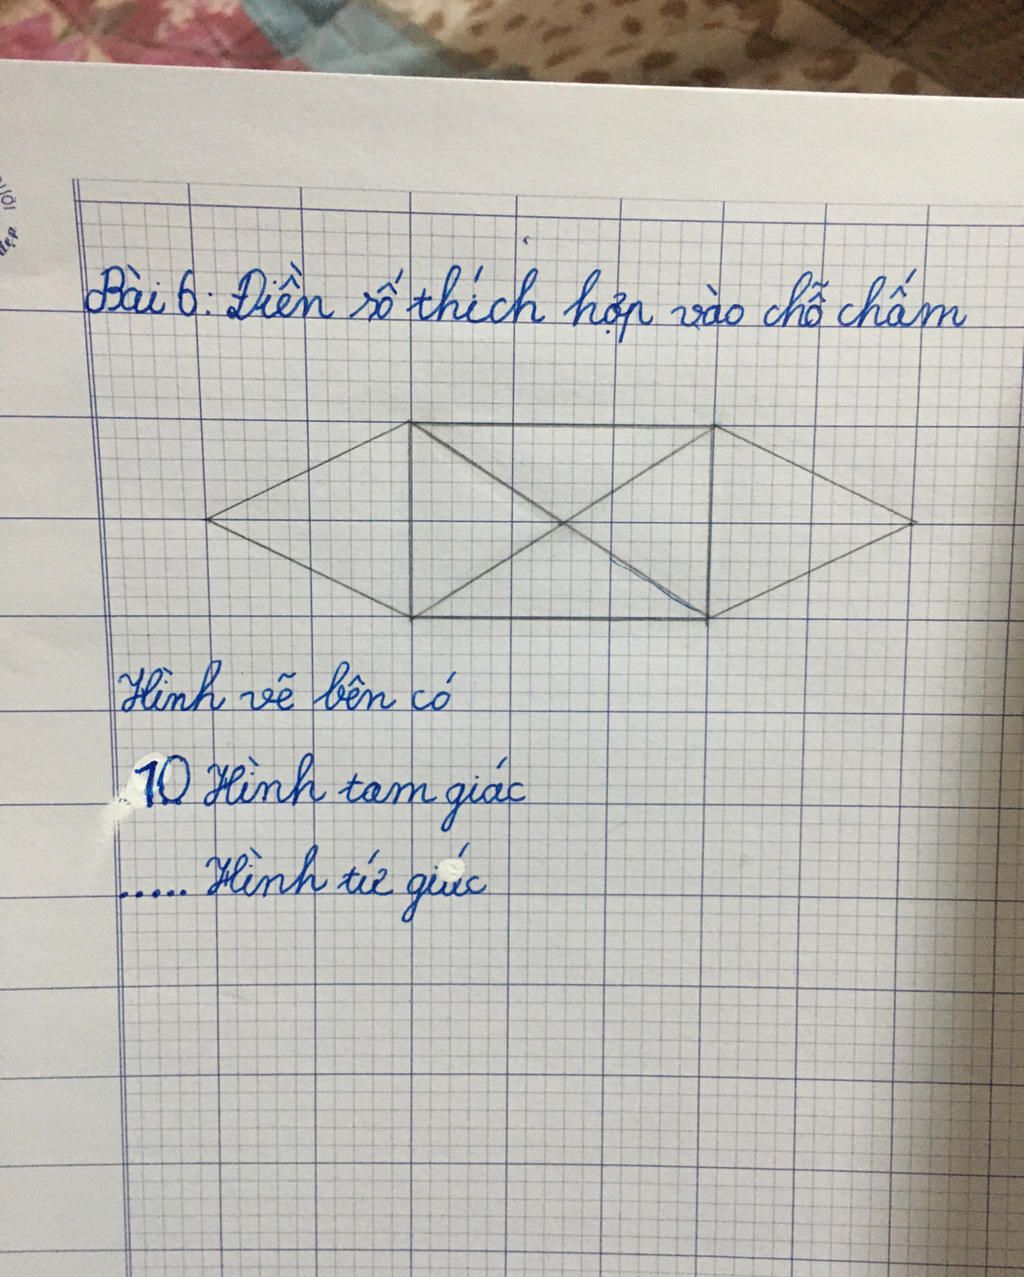 Bài 6: Điền số thích hợp vào chỗ chấm
Hình vẽ bên có
10 Hình tam giác
..... Hình tứ giác